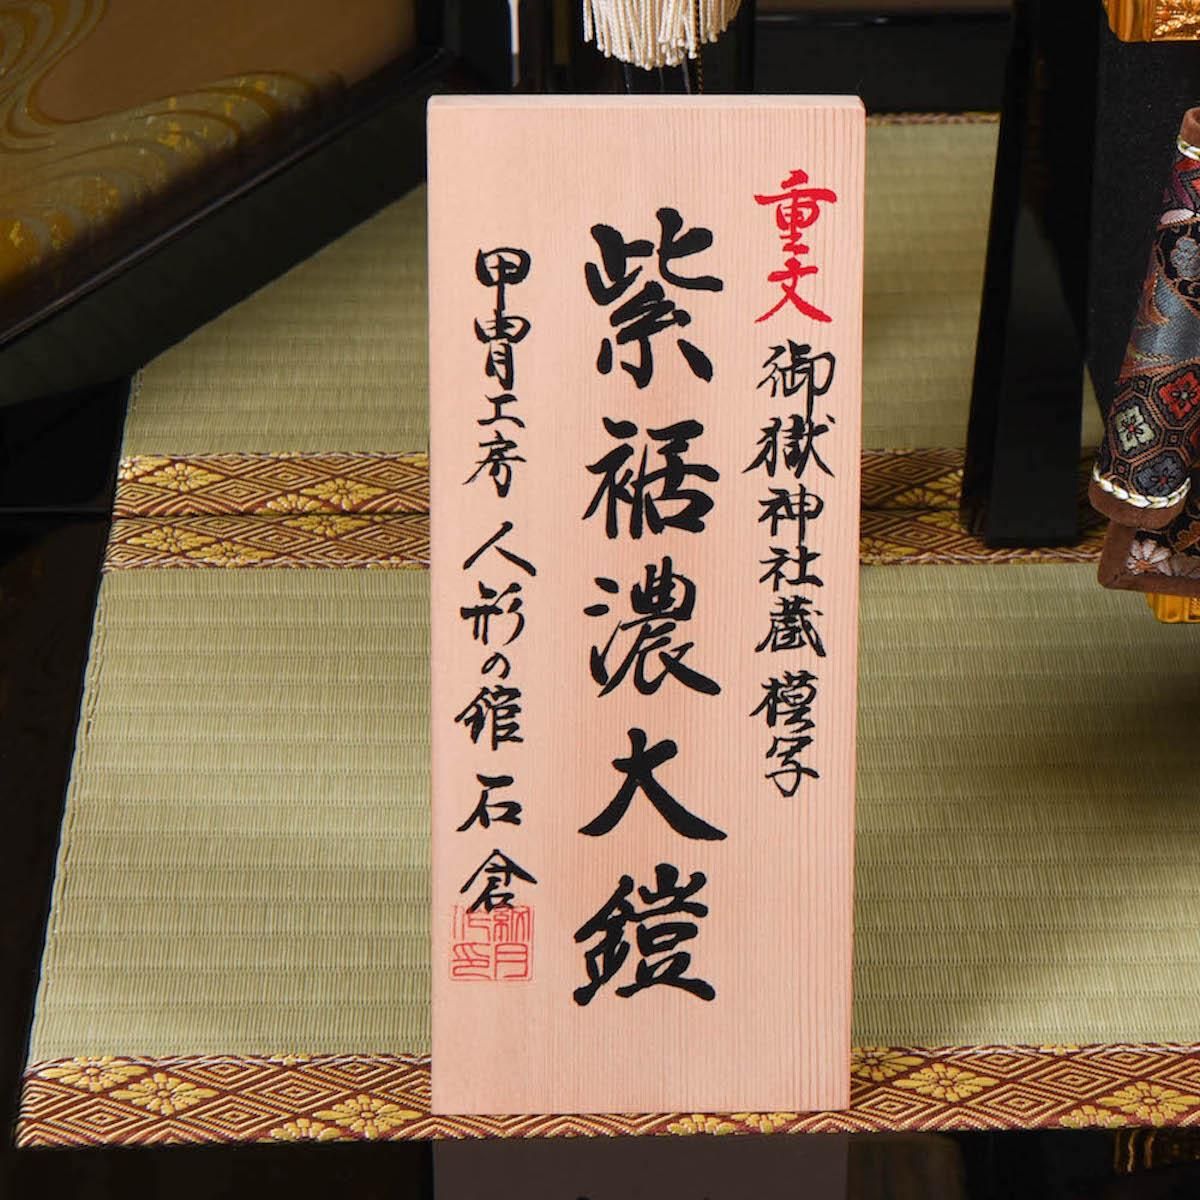 重文 御嶽神社蔵 模写
紫裾濃大鎧
甲冑工房 人形の館 石倉